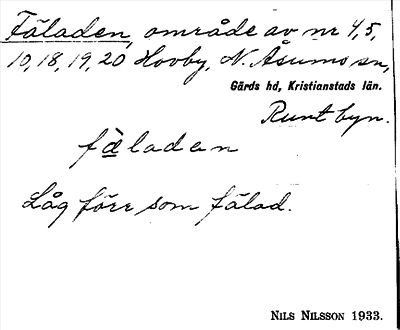 Fäladen, område av nr 4, 5,
10, 18, 19, 20 Hovby, N. Åsums sn,
Gärds hd, Kristianstads län.
Runt byn.
fäladen
Låg förr som fälad.
NILS NILSSON 1933.